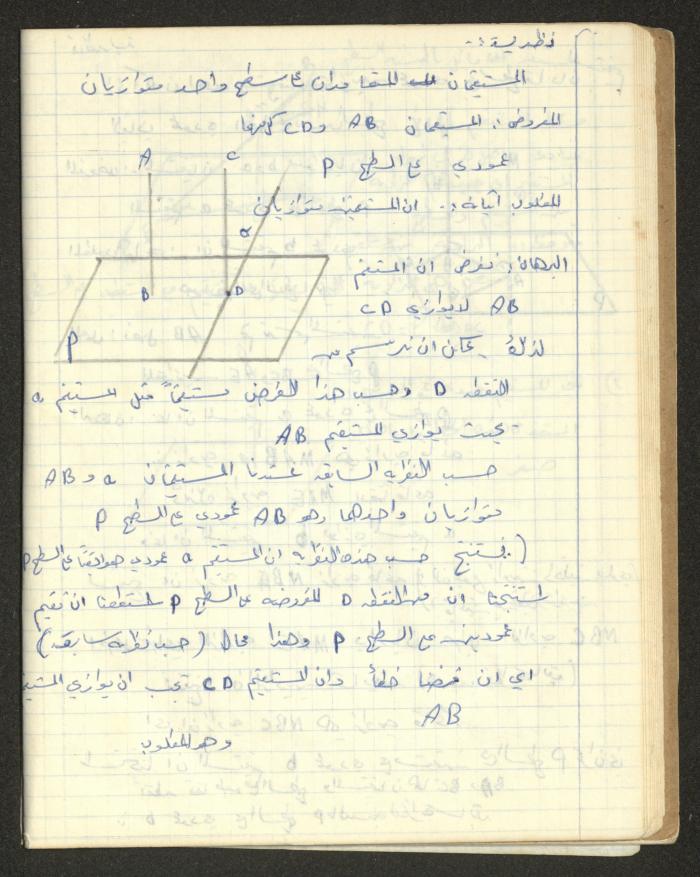 نظرية :-
المستقيمان المقامان على سطح واحد متوازيان
المفروض : المستقيمان AB و CD كلاهما
عمودي على السطح P
المطلوب اثباته :- ان المستقيمين متوازيان
A
C
a
B
D
P
البرهان : نفرض ان المستقيم
AB لا يوازي CD
لذلك يمكن ان نرسم من
النقطه D وحسب هذا الفرض مستقيماً مثل المستقيم a
بحيث يوازي المستقيم AB
حسب النظريه السابقه عندنا المستقيمان a و AB
متوازيان واحدهما وهو AB عمودي على السطح P
( فينتج حسب هذه النظريه ان المستقيم a عمودي هو ايضاً على السطح P
استنتجنا ان من النقطه D المفروضه على السطح P استطعنا ان نقيم
عمودين على السطح P وهذا محال ( حسب نظريه سابقه )
اي ان فرضنا خطأ وان المستقيم CD يجب ان يوازي المستقيم
AB
وهو المطلوب